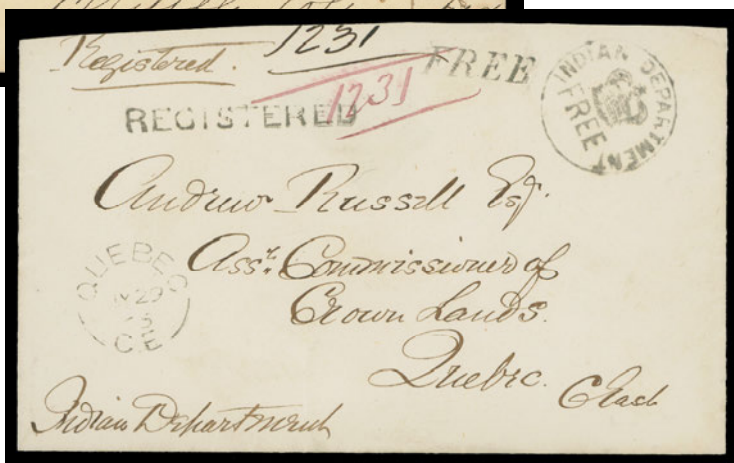 Registered. 1231 FREE
1231
REGISTERED
INDIAN DEPARTMENT
FREE
Andrew Russell Esq.
Asst. Commissioner of
Crown Lands.
Quebec.
C East
QUEBEC
29
C.E
Indian Department